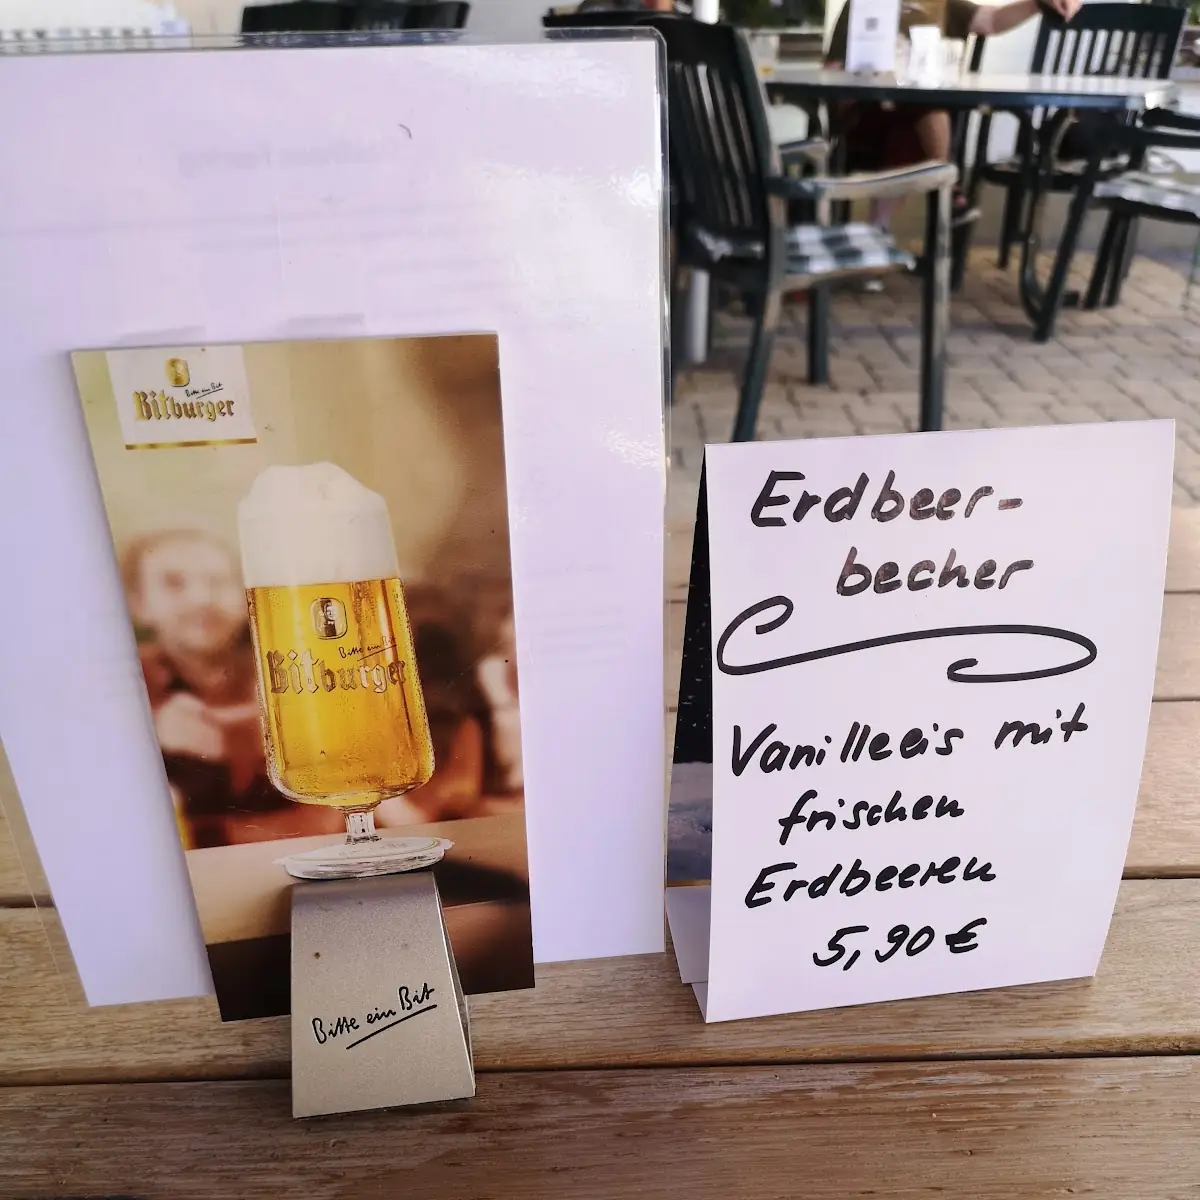 Bitte ein Bit
Bitburger
Bitte ein Bit
Bitburger
Bitte ein Bit
Erdbeer-
becher
Vanilleeis mit
frischen
Erdbeeren
5,90 €